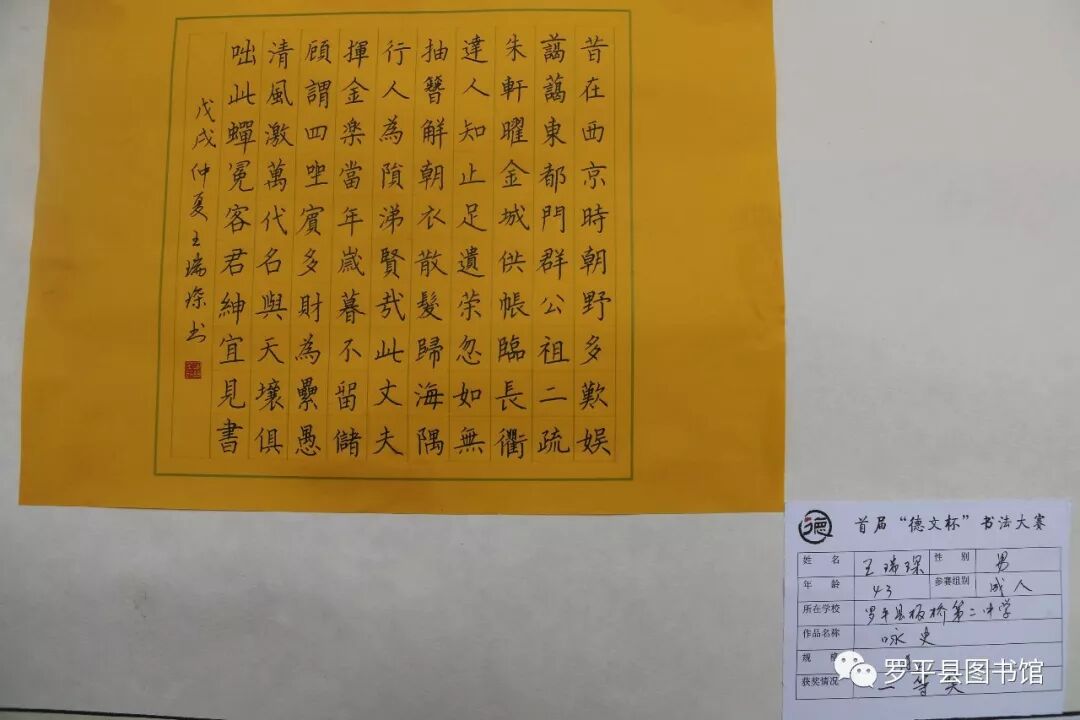 昔在西京時朝野多歎娛
藹藹東都門群公祖二疏
朱軒曜金城供帳臨長衢
達人知止足遺荣忽如無
抽簪解朝衣散髮歸海隅
行人為隕涕賢哉此丈夫
揮金楽當年歲暮不留儲
顧謂四坐賓多財為纍愚
清風激萬代名與天壤俱
咄此蟬冕客君紳宜見書
戊戌仲夏王瑞琛书
德 首届“德文杯”书法大赛
姓名 王瑞琛 性别 男
年龄 43 参赛组别 成人
所在学校 罗平县板桥第二中学
作品名称 咏史
规
获奖情况 一等
罗平县图书馆